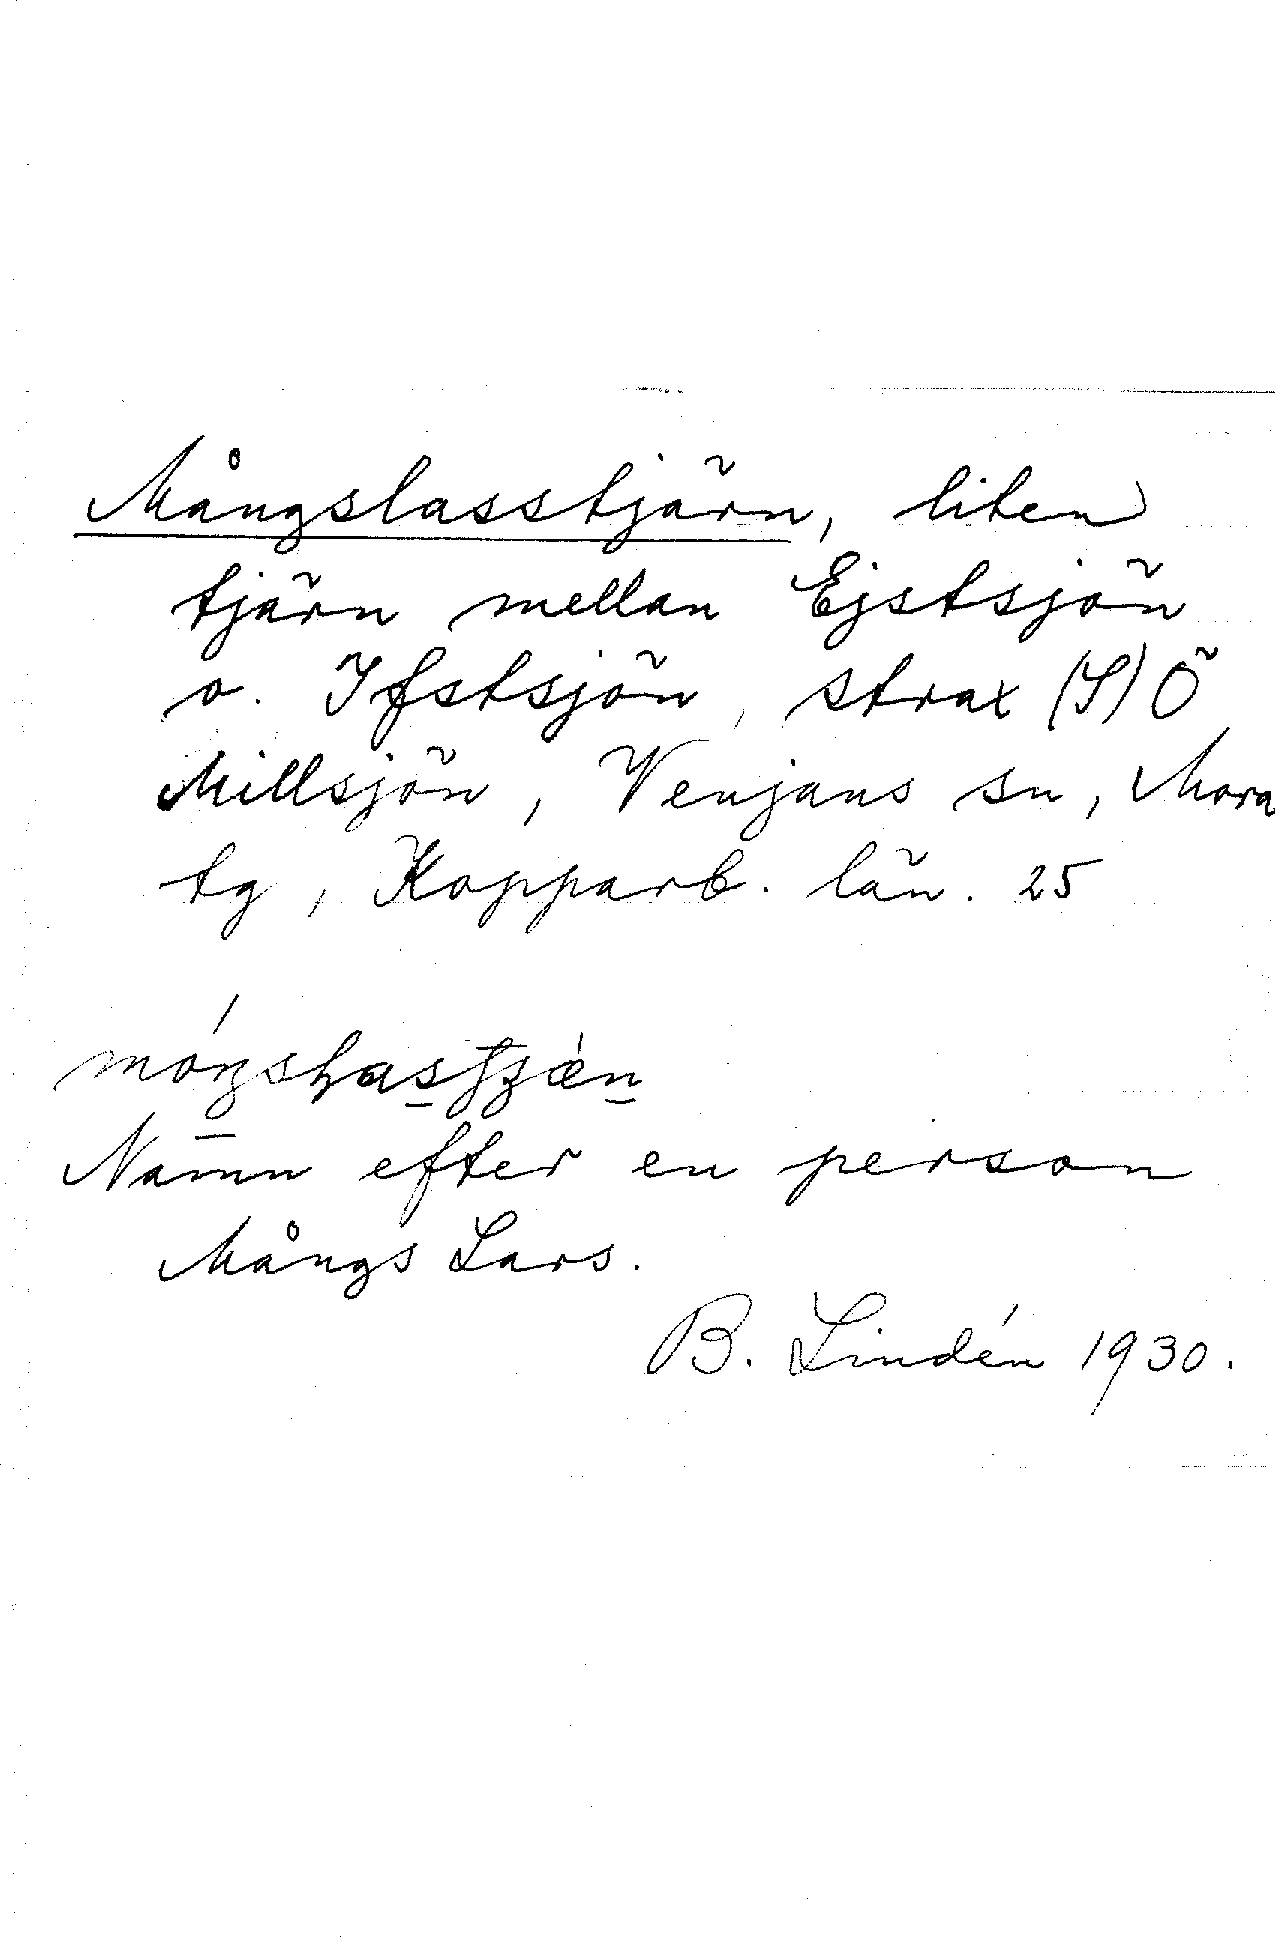 Mångslasstjärn, liten
tjärn mellan Ejstsjön
o. Ifstsjön, strax (S)Ö
Millsjön, Venjans sn, Mora
tg, Kopparb. län. 25
Namn efter en person
Mångs Lars.
B. Lindén 1930.